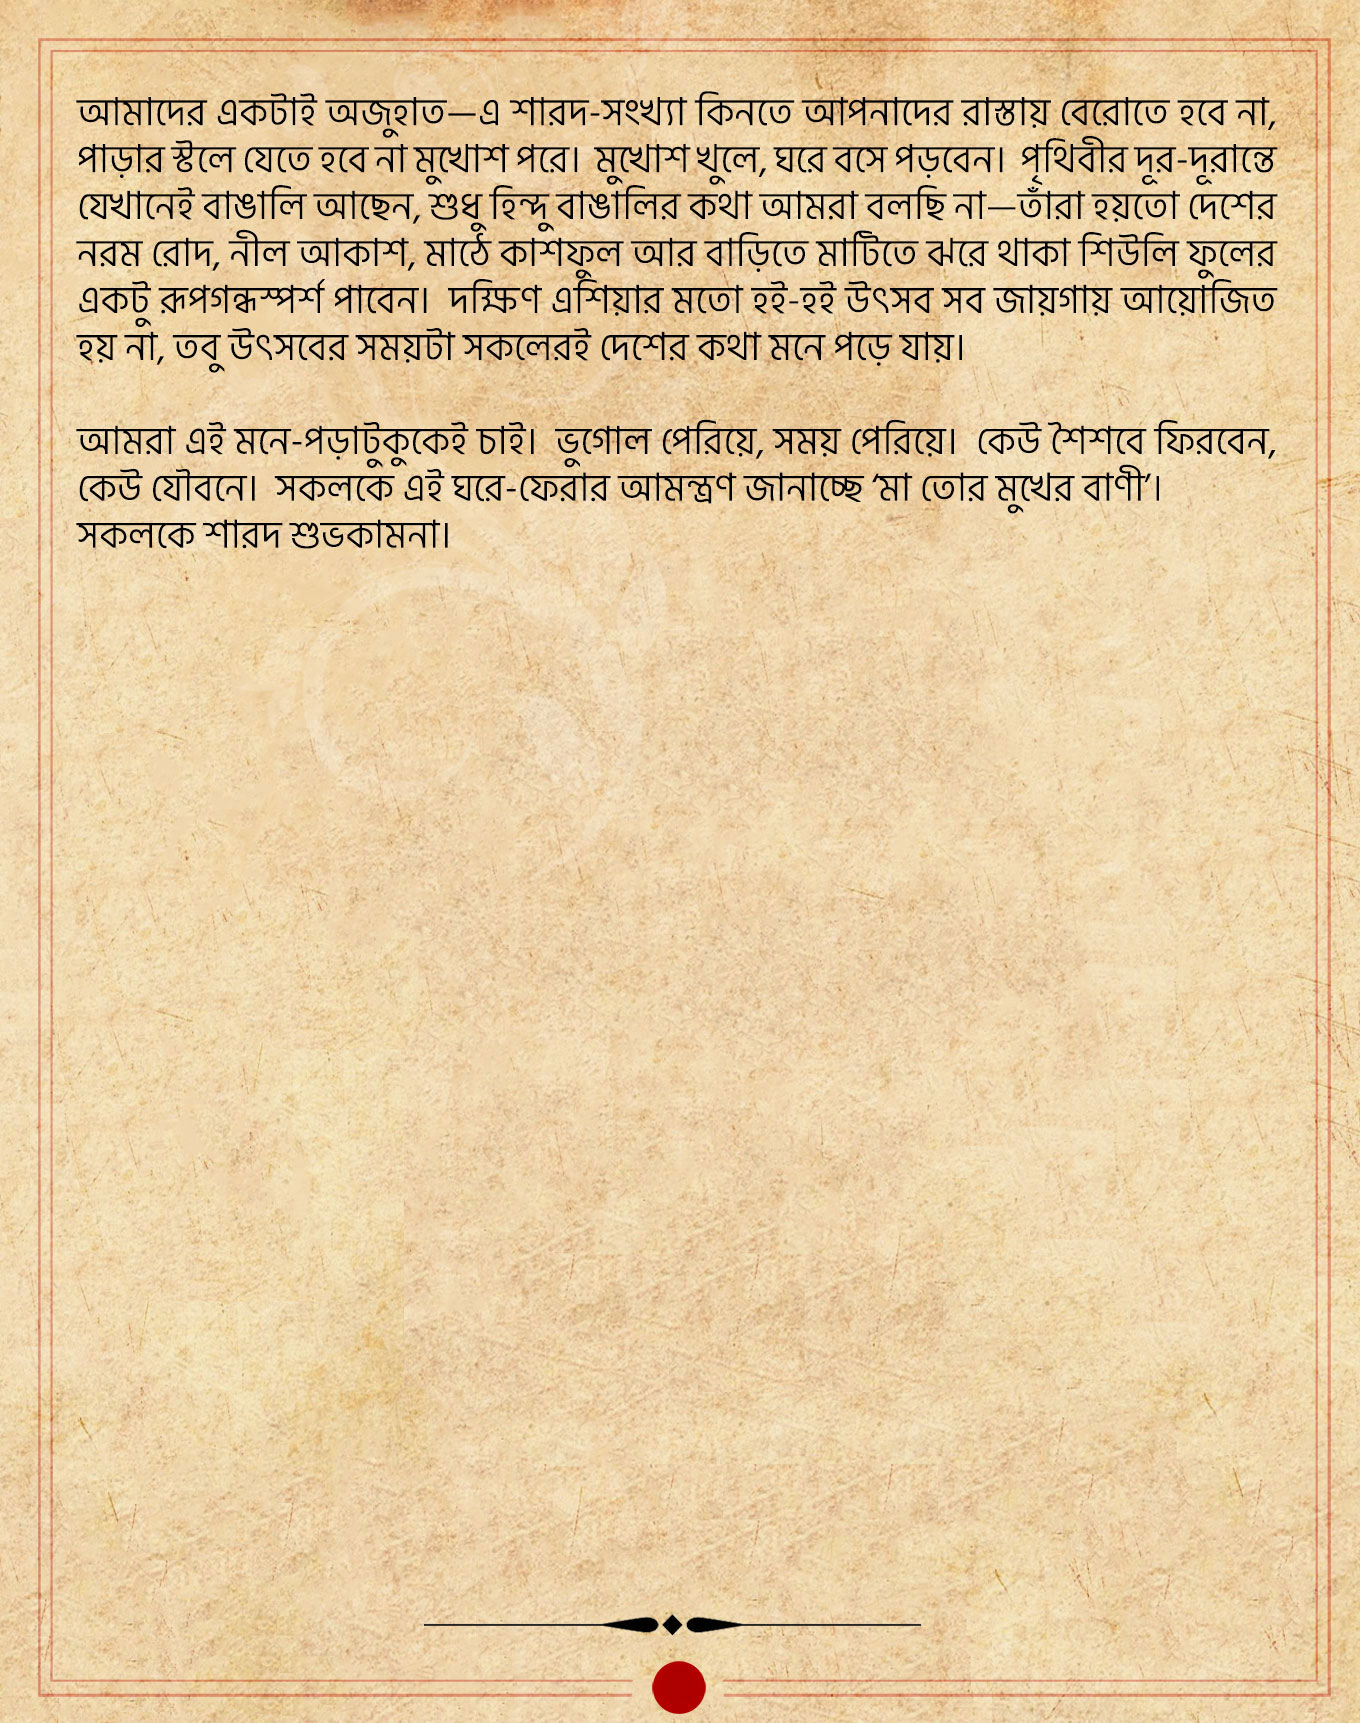 আমাদের একটাই অজুহাত—এ শারদ-সংখ্যা কিনতে আপনাদের রাস্তায় বেরোতে হবে না,
পাড়ার স্টলে যেতে হবে না মুখোশ পরে। মুখোশ খুলে, ঘরে বসে পড়বেন। পৃথিবীর দূর-দূরান্তে
যেখানেই বাঙালি আছেন, শুধু হিন্দু বাঙালির কথা আমরা বলছি না—তাঁরা হয়তো দেশের
নরম রোদ, নীল আকাশ, মাঠে কাশফুল আর বাড়িতে মাটিতে ঝরে থাকা শিউলি ফুলের
একটু রূপগন্ধস্পর্শ পাবেন। দক্ষিণ এশিয়ার মতো হই-হই উৎসব সব জায়গায় আয়োজিত
হয় না, তবু উৎসবের সময়টা সকলেরই দেশের কথা মনে পড়ে যায়।
আমরা এই মনে-পড়াটুকুকেই চাই। ভুগোল পেরিয়ে, সময় পেরিয়ে। কেউ শৈশবে ফিরবেন,
কেউ যৌবনে। সকলকে এই ঘরে-ফেরার আমন্ত্রণ জানাচ্ছে ‘মা তোর মুখের বাণী’।
সকলকে শারদ শুভকামনা।